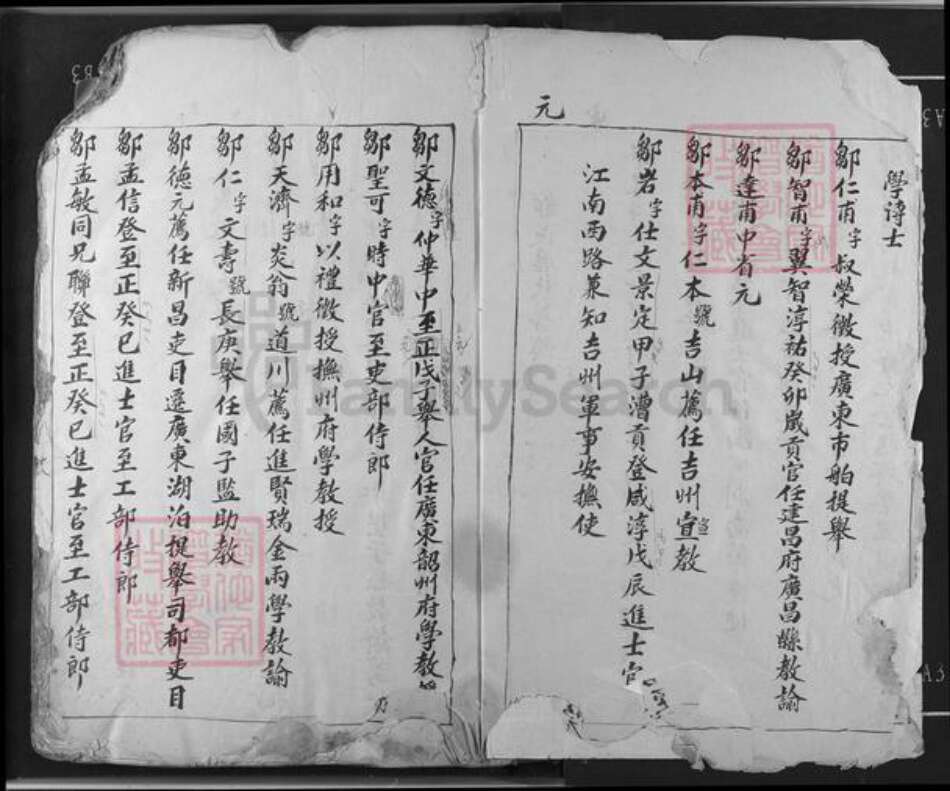 學諭士
鄒仁甫字叔榮徵授廣東市舶提舉
鄒智甫字翼智淳祐癸卯歲貢官任建昌府廣昌縣教諭
鄒達甫中省元
鄒本甫字仁本號吉山薦任吉州宣教
鄒岩字仕文景定甲子漕貢登咸淳戊辰進士官
江南西路兼知吉州軍事安撫使
元
鄒文德字仲華中至正戊子舉人官任廣東韶州府學教
鄒聖可字時中官至吏部侍郎
鄒用和字以禮徵授撫州府學教授
鄒天濟字炎翁號道川薦任進賢瑞金兩學教諭
鄒仁字文壽號長庚舉任國子監助教
鄒德元薦任新昌吏目遷廣東湖泊提舉司都吏目
鄒孟信登至正癸巳進士官至工部侍郎
鄒孟敏同兄聯登至正癸巳進士官至工部侍郎
FamilySearch